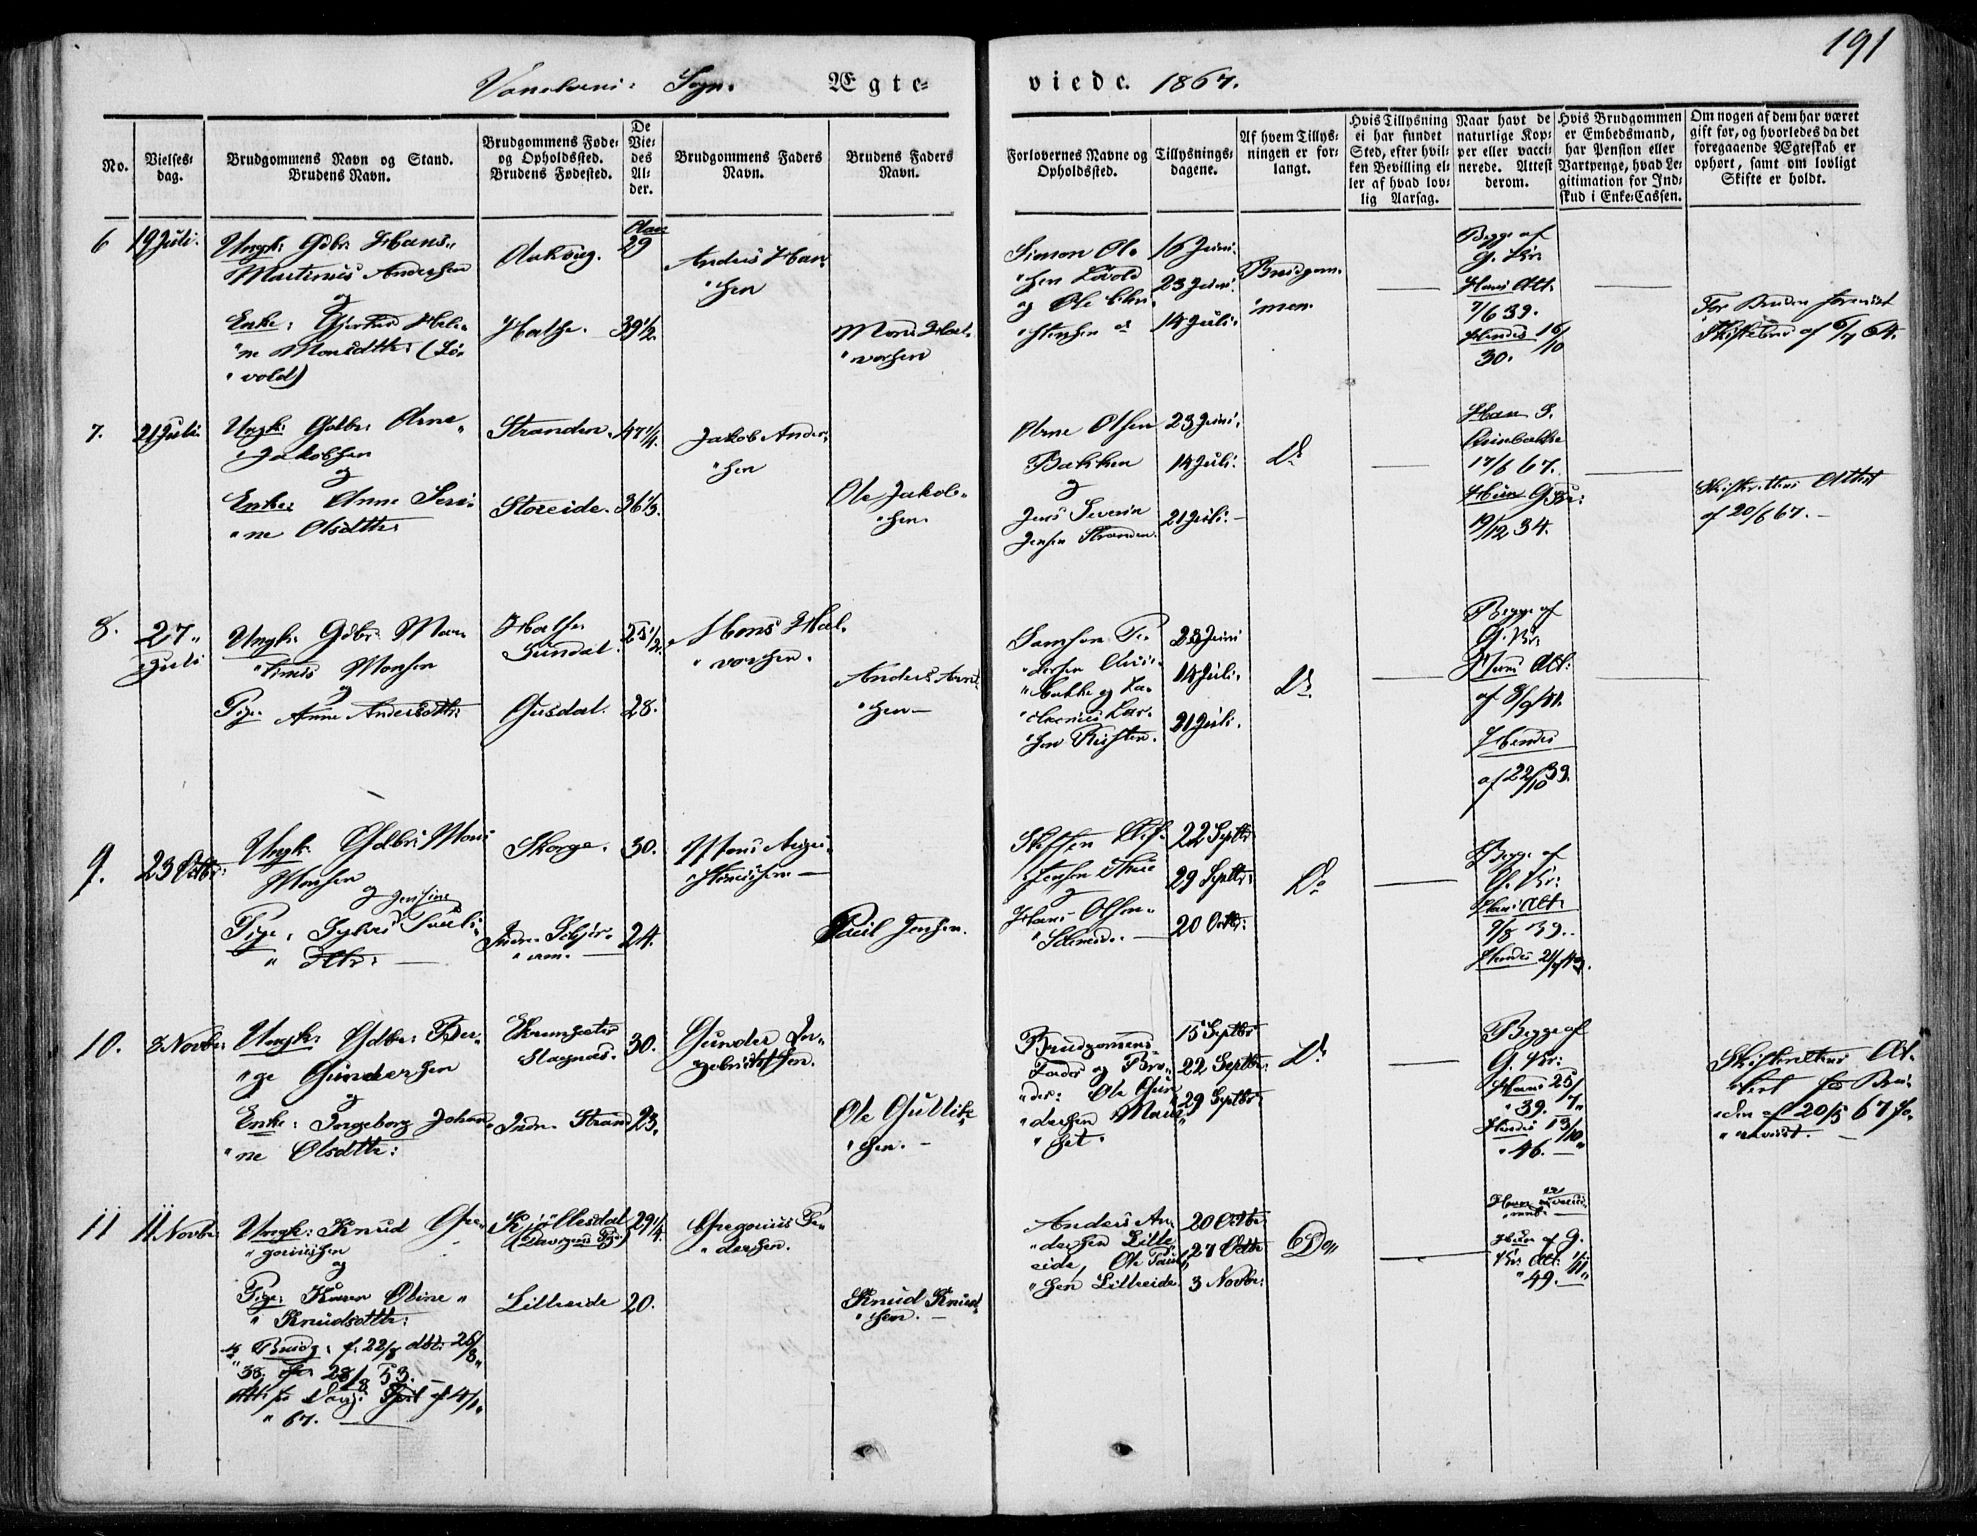 191
Sogn. Ægte- viede. 1867.
No.
Vielses-
dag.
Brudgommens Navn og Stand.
Brudens Navn.
Brudgommens Føde-
og Opholdssted.
Brudens Fødested.
De
Vie-
des
Al-
der.
Brudgommens Faders
Navn.
Brudens Faders
Navn.
Forlovernes Navne og
Opholdssted.
Tillysnings-
dagene.
Af hvem Tillys-
ningen er for-
langt.
Hvis Tillysning
ei har fundet
Sted, efter hvil-
ken Bevilling el-
ler af hvad lov-
lig Aarsag.
Naar havt de
naturlige Kop-
per eller vacci-
nerede. Attest
derom.
Hvis Brudgommen
er Embedsmand,
har Pension eller
Vartpenge, hvad Le-
gitimation for Ind-
skud i Enke-Cassen.
Om nogen af dem har været
gift før, og hvorledes da det
foregaaende Ægteskab er
ophørt, samt om lovligt
Skifte er holdt.
6 19 Juli.
Ungk: Gdbr. Hans
Martinus Andersen
og
Enke: Gjertrud Heli-
"ne Monsdttr. (Lø-
"vold)
Aakvig.
Hatle.
Aar
29
39 1/2.
Anders Han-
"sen
Mons Hal-
"vorsen
Simon Ol-
"sen Løvold
og Ole Chri-
"stensen
16 Juni.
23 Juni.
14 Juli.
Brudgom-
"men.
Begge af
G. Kr:
Hans Att:
7/6 39.
Hendes 16/10
30.
For Bruden forevist
Skiftebrev af 6/7 64.
7. 21 Juli.
Ungk: Gdbr: Arne
Jakobsen
og
Enke: Anne Seri-
"ne Olsdttr:
Stranden.
Storeide.
47 1/4.
36 1/3.
Jakob Ander-
"sen
Ole Jakob-
"sen.
Arne Olsen
Bakken
og
Jens Severin
Jensen Stranden.
23 Juni.
14 Juli.
21 Juli.
Do
Han S.
17/6 67.
Hun G. Kr:
19/12 34.
Skifterettens Attest
af 20/6 67.
8. 27
Juli
Ungk: Gdbr. Mar-
"tinus Monsen
og
Pige. Anne Andersdttr:
Hatle
Sundal.
Gusdal.
25 1/2.
28.
Mons Hal-
"vorsen.
Anders Arne-
"sen
Samson Pe-
"dersen Aurs-
"bakke og La-
Lar-
"sen Rusten.
23 Juni
14 Juli.
21 Juli.
Do
Begge af
G. Kr:
Hans Att:
af 8/9 41.
Hendes
af 22/10 39.
9. 23 Octbr:
Ungk: Gdbr: Mons
Monsen
og Jensine
Pige: Sylvi Pauli-
" Dttr:
Skorge.
Indre Schjer-
"ven.
30.
24.
Mons Augu-
"stinussen
Paul Jensen.
Steffen
Jenson
og
Hans Olsen
22 Septbr
29 Septbr:
20 Octbr:
Do
Begge af
G. Kr:
Hans Att:
9/8 39.
Hendes 21/7 43.
10. 8 Novbr:
Ungk: Gdbr: Bør-
"ge Gundersen
og
Enke: Ingeborg Johan-
"ne Olsdttr:
Slagnæs.
Indre Strand
30.
23.
Gunder In-
gebrigtsen.
Ole Gullik-
"sen.
Brudgomens
Fader og Bro-
"der: Ole Gun-
"dersen Maur-
"set.
15 Septbr
22 Septbr:
29 Septbr:
Do
Begge af
G. Kr:
Hans 25/7
"39.
Hendes 13/10
"46.
Skifterettens At-
"test for Bru-
"den af 20/5 67 fo-
"revist.
11 11 Novbr:
Ungk: Knud Gre-
"goriussen
og
Pige: Karen Oline
" Knudsdttr:
Brudg: f. 22/8 dbt: 26/8
"38,
af 4/1
" 67.
Kjøllesdal
Lilleeide
29 1/4
20.
Gregorius Pe-
"dersen.
Knud Knud-
"sen.
Anders An-
"dersen Lille-
eide, Ole Paul-
"sen Lilleeide.
20 Octbr
27 Octbr
3 Novbr:
Do
Hun af G.
Kr: Att: 1/11
"49.